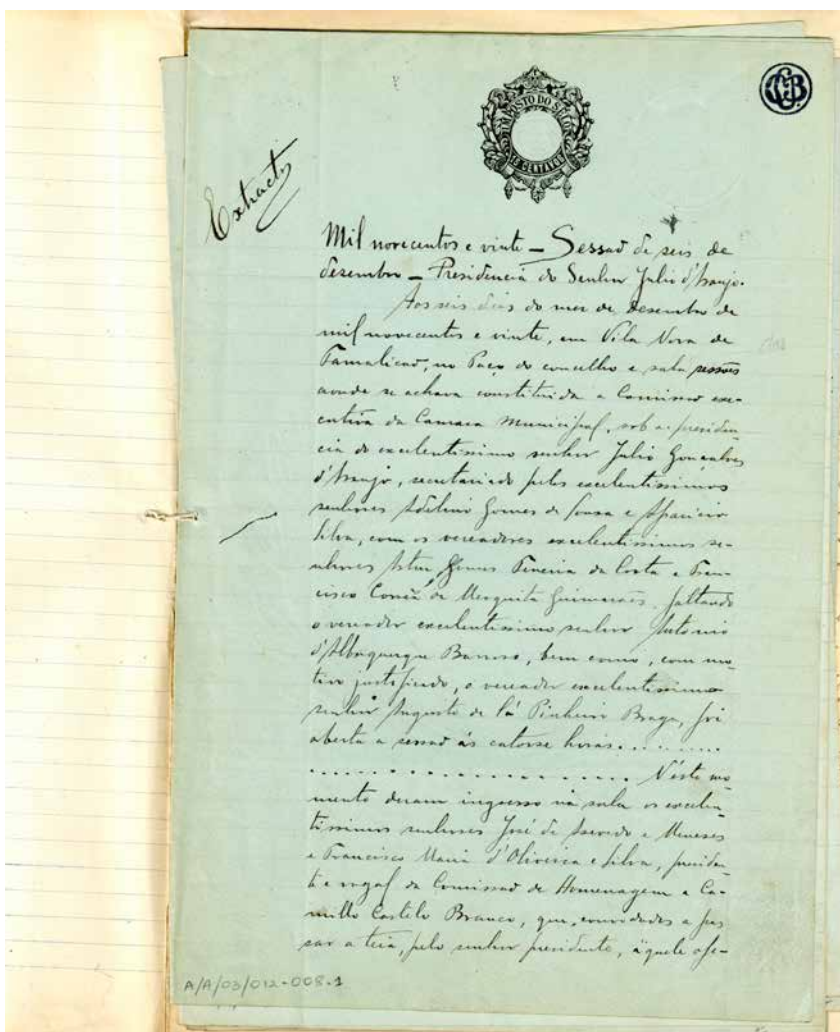 IMPOSTO DO SELO
CENTAVOS
CCB
Extracto
Mil novecentos e vinte — Sessão de seis de
desembro — Presidencia do Senhor Julio d'Araujo.
Aos seis dias do mez de desembro de
mil novecentos e vinte, em Vila Nova de
Famalicão, no Paço do concelho e sala sessões
aonde se achava constituida a Comissão exe-
cutiva da Camara Municipal, sob a presiden-
cia do excelentissimo senhor Julio Gonçalves
d'Araujo, secretariado pelos excelentissimos
senhores Adelino Gomes de Sousa e Aparicio
Silva, com os vereadores excelentissimos se-
nhores Artur Gomes Teixeira da Costa e Fran-
cisco Corrêa de Mesquita Guimarães, faltando
o vereador excelentissimo senhor Antonio
d'Albuquerque Barroso, bem como, com mo-
tivo justificado, o vereador excelentissimo
senhor Augusto de Sá Pinheiro Braga, foi
aberta a sessão ás catorse horas..........
.................... Néste mo-
mento deram ingresso na sala os excelen-
tissimos senhores José de Azevedo e Meneses
e Francisco Maria d'Oliveira e Silva, presiden-
te e vogal da Comissão de Homenagem a Ca-
millo Castelo Branco, que, convidados a pas-
sar a teia, pelo senhor presidente, áquele ofe-
A/A/03/012-008.1